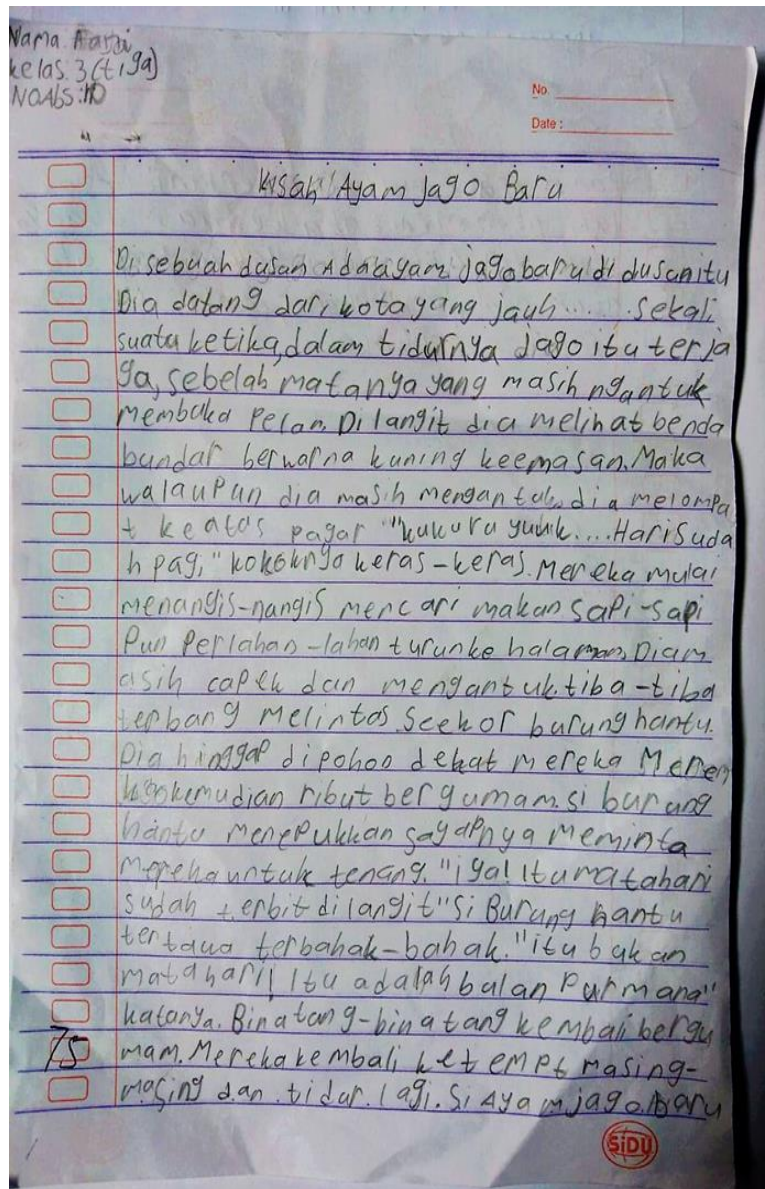 Nama.
kelas.3(tiga)
NOAbs:10
No.
Date:
kisah Ayam Jago Baru
Di sebuah dusun Ada ayam jago baru di dusun itu
Dia datang dari kota yang jauh...... sekali
suatu ketika, dalam tidurnya Jago itu terja
ga, sebelah matanya yang masih ngantuk
membuka Pelan. Di langit dia melihat benda
bundar berwarna kuning keemasan. Maka
walaupun dia masih mengantuk, dia melompa
t keatas pagar "kukuru yuuk.... Hari Suda
h pagi" kokoknya keras-keras. Mereka mulai
menangis-nangis mencari makan sapi-sapi
Pun Perlahan-lahan turun ke halaman, Diam
asih capek dan mengantuk. tiba-tiba
terbang melintas Seekor burung hantu.
Dia hinggap dipohoo dekat mereka
kemudian ribut bergumam. si burung
hantu menepukkan sayapnya meminta
mereka untuk tenang. "iya! Itu matahari
sudah terbit di langit" Si Burung hantu
tertawa terbahak-bahak. "itu bukan
matahari! Itu adalah bulan Purmana"
katanya. Binatang-binatang kembali bergu
mam. Mereka kembali ketempt masing-
masing dan tidur lagi. Si Ayam jago baru
75
SiDU